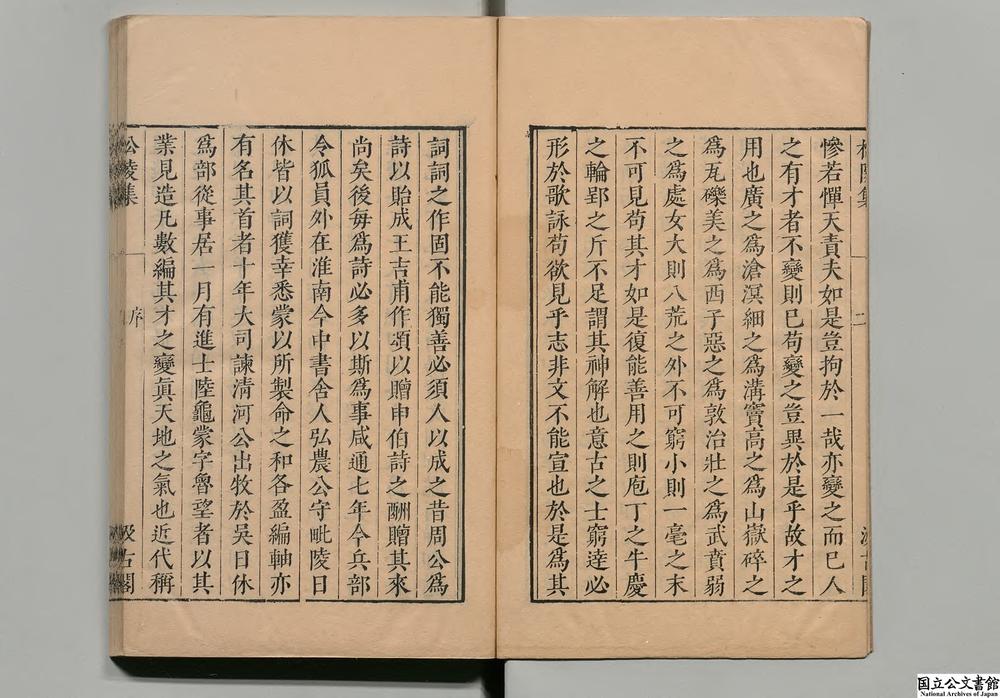 慘若憚天責夫如是豈拘於一哉亦變之而巳人
之有才者不變則巳苟變之豈異於是乎故才之
用也廣之爲滄溟細之爲溝竇高之爲山嶽碎之
爲瓦礫美之爲西子惡之爲敦洽壯之爲武賁弱
之爲處女大則八荒之外不可窮小則一毫之末
不可見苟其才如是復能善用之則庖丁之牛慶
之輪郢之斤不足謂其神解也意古之士窮達必
形於歌詠苟欲見乎志非文不能宣也於是爲其
詞詞之作固不能獨善必須人以成之昔周公爲
詩以貽成王吉甫作頌以贈申伯詩之酬贈其來
尚矣後每爲詩必多以斯爲事咸通七年今兵部
令狐員外在淮南今中書舍人弘農公守毗陵日
休皆以詞獲幸悉蒙以所製命之和各盈編軸亦
有名其首者十年大司諫清河公出牧於吳日休
爲部從事居一月有進士陸龜蒙字魯望者以其
業見造凡數編其才之變眞天地之氣也近代稱
松陵集 序 汲古閣
二
国立公文書館
National Archives of Japan